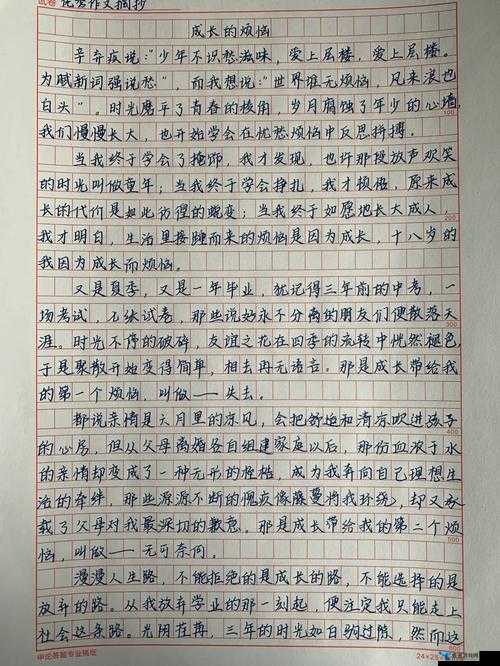 试卷 优秀作文摘抄
成长的烦恼
辛弃疾说：“少年不识愁滋味，爱上层楼，爱上层楼。
为赋新词强说愁”，而我想说：“世界谁无烦恼，风来浪也
白头”，时光磨平了青春的棱角，岁月腐蚀了年少的心墙，
我们慢慢长大，也开始学会在忧愁烦恼中反思拼搏。
100
当我终于学会了掩饰，我才发现，也许那段放声欢笑
的时光叫做童年；当我终于学会挣扎，我才极傲，原来成
长的代价是如此彷徨的蜕变；当我终于如愿地长大成人，
200
我才明白，生活里接踵而来的烦恼是因为成长，十八岁的
我因为成长而烦恼。
又是夏季，又是一年毕业，犹记得三年前的中考，一
场考试，几张试卷，那些说好永不分离的朋友们便散落天
300
涯。时光不停的破碎，友谊之花在四季的流转中恍然褪色，
于是聚散开始变得简单，相去再无语言。那是成长带给我
的第一个烦恼，叫做——失去。
都说亲情是六月里的凉风，会把舒适和清凉吹进孩子
400
的心房，但从父母离婚各自组建家庭以后，那份血浓于水
的亲情却变成了一种无形的桎梏，成为我奔向自己理想生
活的牵绊，那些源源不断的愧疚像藤蔓将我环绕，却又承
500
载了父母对我最深切的歉意。那是成长带给我的第二个烦
恼，叫做——无可奈何。
漫漫人生路，不能拒绝的是成长的路，不能选择的是
放弃的路。从我放弃学业的那一刻起，便注定我只能走上
社会这条路。光阴荏苒，三年的时光如白驹过隙，然而这
600
申论答题专业稿纸
24×25